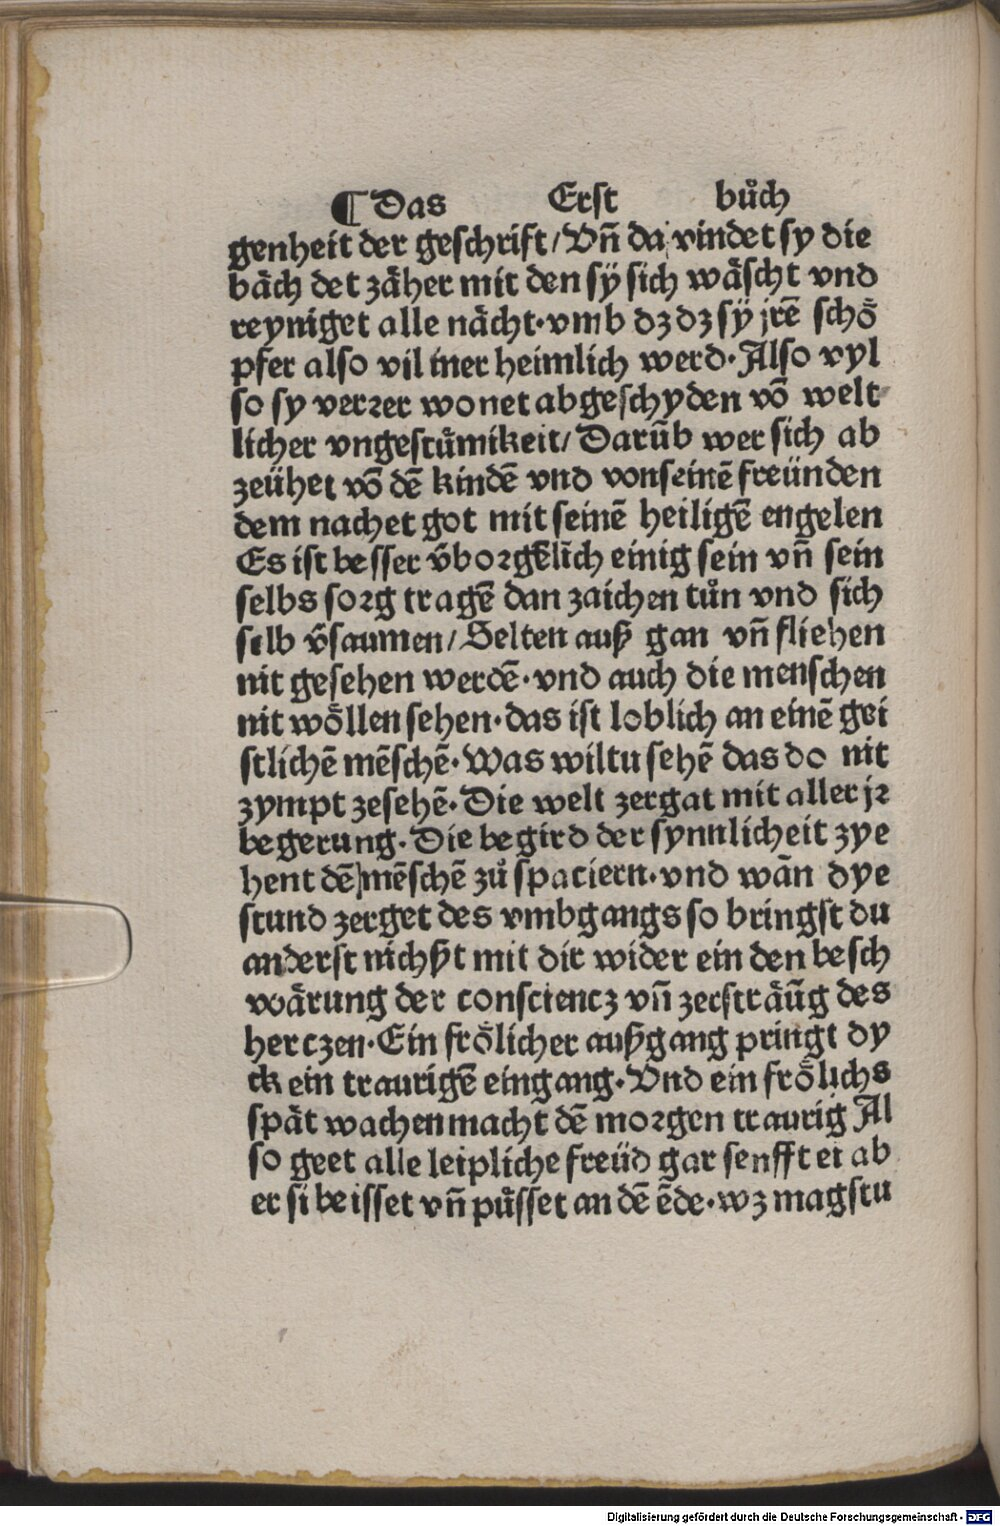 ¶ Das Erst bůch
genheit der geschrift / Vn̄ da vindet sy die
bäch det zäher mit den sÿ sich wäscht vnd
reyniget alle nächt · vmb dz dz sÿ jrē schö
pfer also vil mer heimlich werd · Also vyl
so sy verꝛer wonet abgeschyden vō welt
licher vngestu̇mikeit / Darūb wer sich ab
zeühet vō dē kindē vnd von seinē freünden
dem nachet got mit seinē heiligē engelen
Es ist besser v̄boꝛgēlich einig sein vn̄ sein
selbs soꝛg tragē dan zaichen tůn vnd sich
selb v̄saumen / Selten auß gan vn̄ fliehen
nit gesehen werdē · vnd auch die menschen
nit wöllen sehen · das ist loblich an einē gei
stlichē mēschē · Was wiltu sehē das do nit
zympt zesehē · Die welt zergat mit aller jꝛ
begerung · Die begird der synnlicheit zye
hent dē mēschē zů spaciern · vnd wān dye
stund zerget des vmbgangs so bringst du
anderst nichßt mit dir wider ein den besch
wärung der consciencz vn̄ zersträūg des
herczen · Ein frölicher außgang pringt dy
ck ein traurigē eingang · Vnd ein frölichs
spät wachen macht dē moꝛgen traurig Al
so geet alle leipliche freüd gar senfft ei ab
er si beisset vn̄ pu̇sset an dē ēde · wz magstu
Digitalisierung gefördert durch die Deutsche Forschungsgemeinschaft - DFG